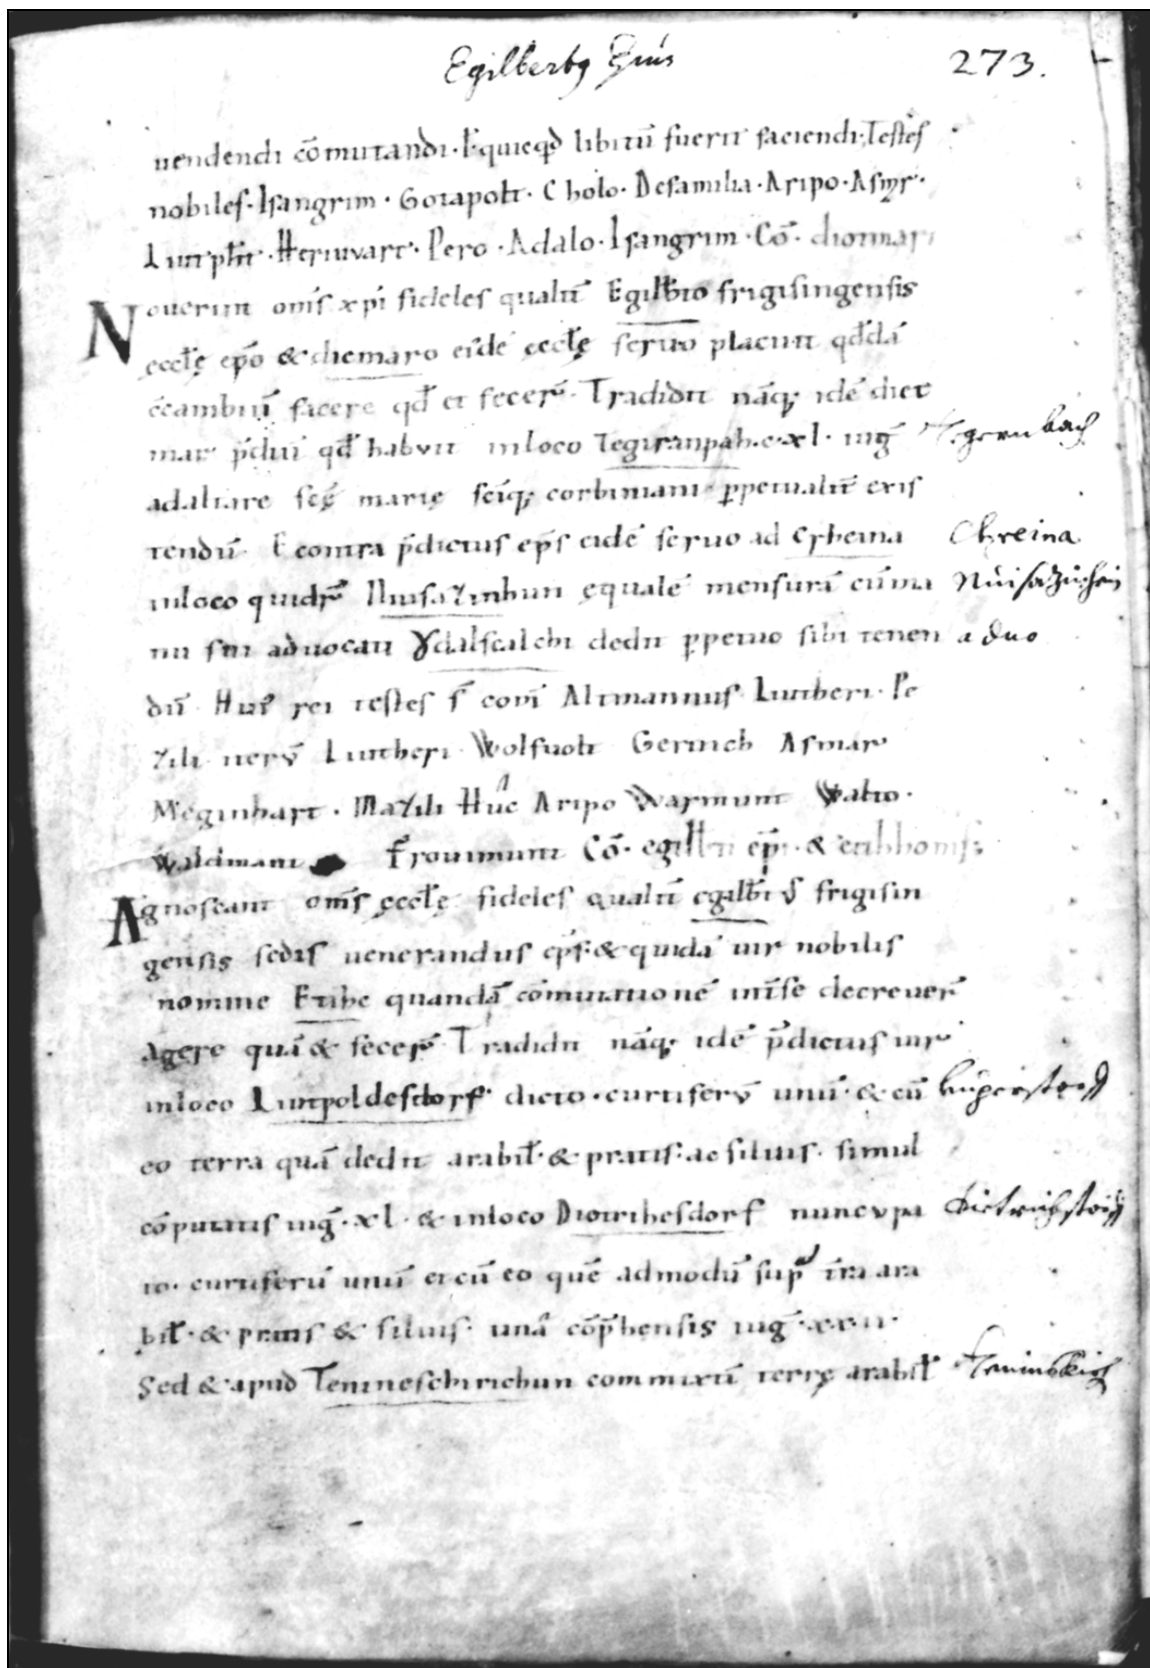 Egilbertꝰ Epus 273.
uendendi cōmutandi · ł quicqd libitū fuerit faciendi · Testes
nobiles · Isangrim · Gotapolt · Cholo · De familia · Aripo · Asmr ·
Liutpht · Heriuuart · Pero · Adalo · Isangrim · Cō · diotmari
Nouerint om̄s xp̄i fideles qualit̄ Egilb̄to frigisingensis
ęccłę ep̄o & diemaro eidē ęccłę seruo placuit qđdā
c̄cambiū facere qđ et fecer̄ · Tradidit nāq; idē diet
mar p̄diū qđ habuit inloco Tegiranpah · c · xl · iug̅ Tegernbach
adaltare sc̄ę marię sc̄iq; corbiniani p̱petualit̄ exis
tendū · E contra p̄dictus ep̄s eidē seruo ad Crheina Chreina
inloco quidr̄ Niusazinhun ęqualē mensurā cū ma Niusazinhun
nu sui aduocati Ỽdalscalchi dedit p̱petuo sibi tenen a duo
dū · Huiꝰ rei testes s̄ com̄ Altmannus · Liutheri · Pe
zili · uerū Liutheri · Wolfuolt Gerrich Asmar
Meginhart · Mazili Huc Aripo Warmunt Walto ·
Waldmann Frouimunt Cō · egilb̄ti ep̄i · & etihhonis
Agnoscant om̄s ęccłę fideles qualit̄ egilb̄tꝰ frigisin
gensis sedis uenerandus ep̄s · & quidā uir nobilis
nomine Etihc quandā cōmutationē int̄ se decreuer̄
agere quā & fecer̄ · Tradidit nāq; idē p̄dictus uir
inloco Liutpoldesdorf dicto · curtiferū unū · & cū
eo terra quā dedit arabił · & pratis · ac siluis · simul
cōputatis iug̅ · xl · & inloco Diotrihesdorf nuncupa
to · curtiferū unū et cū eo quē admodū sup̄ t̄ra ara
bił · & pratis & siluis · unā cōp̄hensis iug̅ · xxii ·
Sed & apud Tenineschirichun commixtī terrę arabił